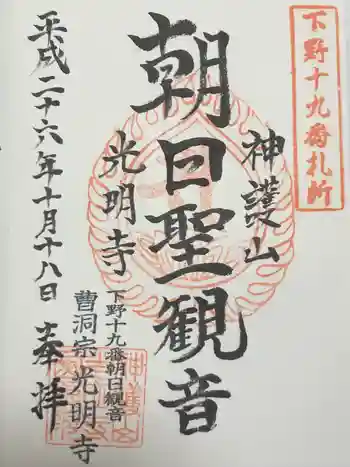 下野十九番札所
神護山
朝日聖観音
光明寺
下野十九番朝日観音
曹洞宗光明寺
平成二十六年十月十八日
奉拝